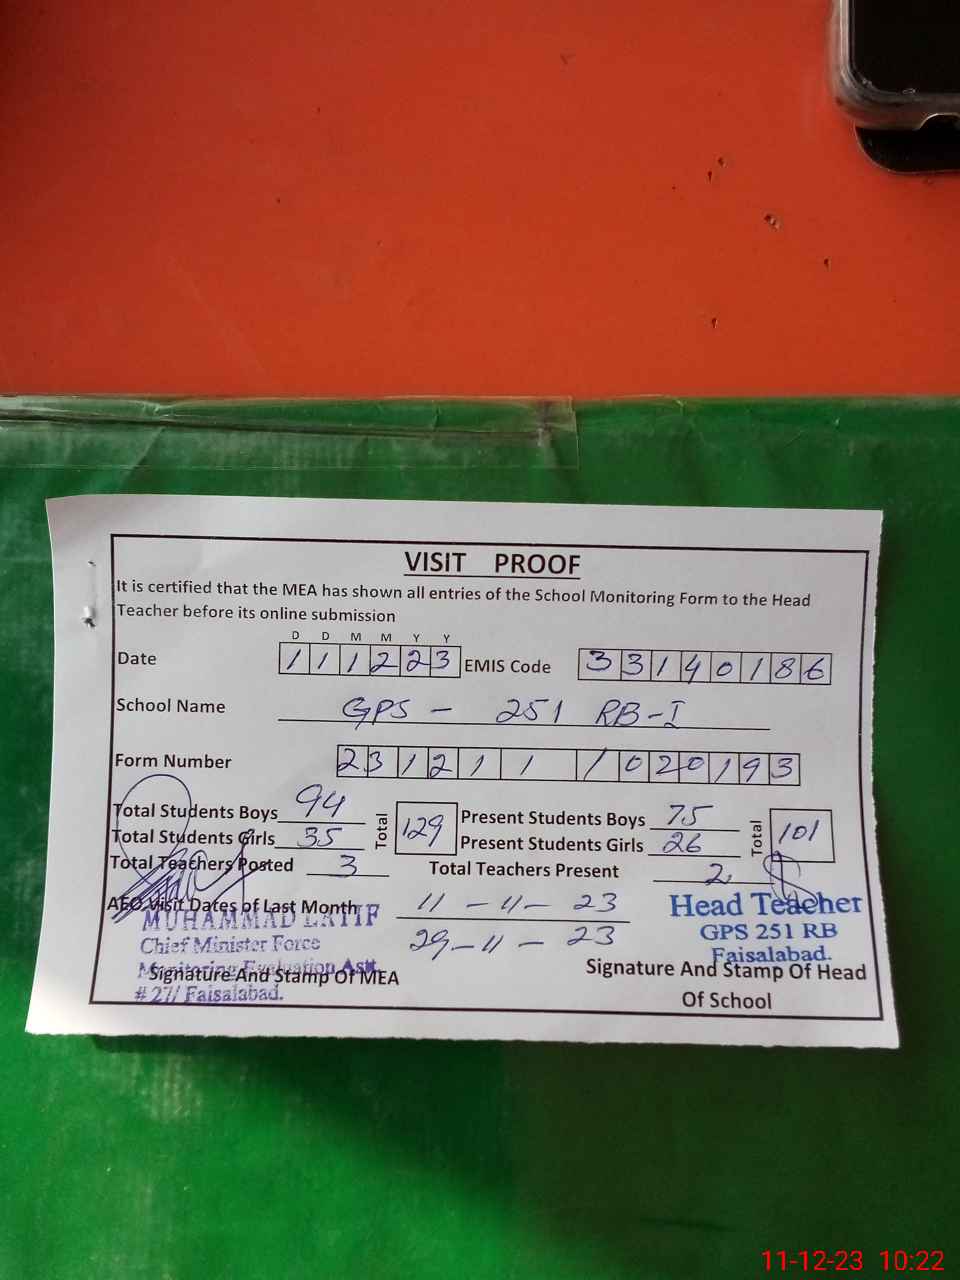 VISIT PROOF
It is certified that the MEA has shown all entries of the School Monitoring Form to the Head
Teacher before its online submission
D D M M Y Y
Date 1 1 1 2 2 3 EMIS Code 3 3 1 4 0 1 8 6
School Name GPS - 251 RB-I
Form Number 2 3 1 2 1 1 1 0 2 0 1 9 3
Total Students Boys 94 Total 129 Present Students Boys 75 Total 101
Total Students Girls 35 Present Students Girls 26
Total Teachers Posted 3 Total Teachers Present 2
AEO Visit Dates of Last Month 11 - 11 - 23
29 - 11 - 23
MUHAMMAD LATIF
Chief Minister Force
Monitoring Evaluation Astt.
# 27/ Faisalabad.
Signature And Stamp Of MEA
Head Teacher
GPS 251 RB
Faisalabad.
Signature And Stamp Of Head
Of School
11-12-23 10:22